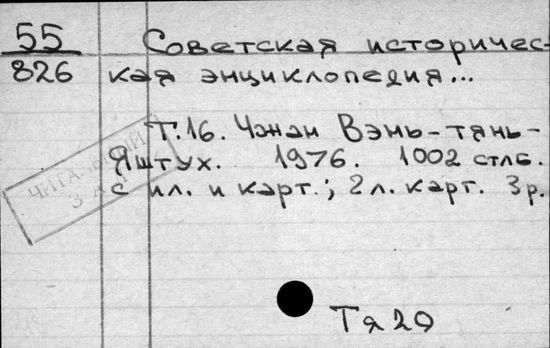 55 Советская историчес-
826 кая энциклопедия...
Т.16. Чжан Вэнь-тянь-
Яштух. 1976. 1002 стлб.
с ил. и карт.; 2 л. карт. 3 р.
ЧИТАЛЬНЫЙ
ЗАЛ
Тя 20